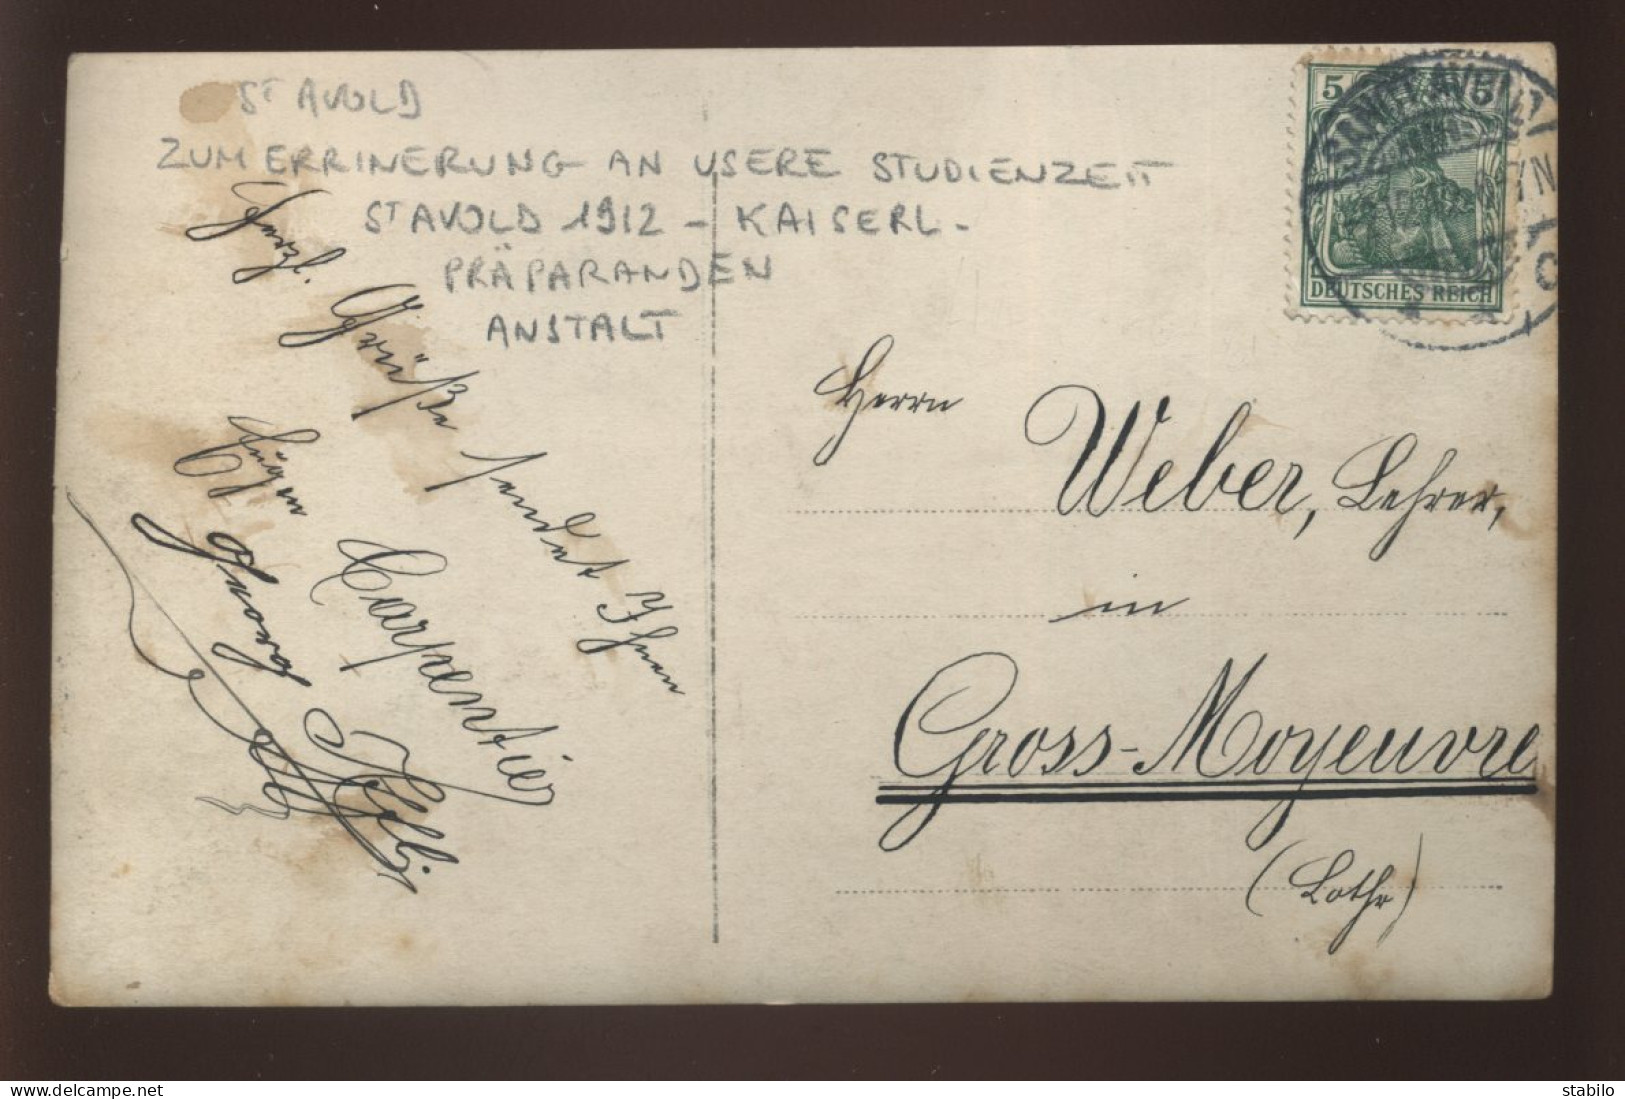 ST AVOLD
ZUM ERRINERUNG AN USERE STUDIENZEIT
ST AVOLD 1912 - KAISERL.
PRÄPARANDEN
ANSTALT
Herzl. Grüße sendet Ihnen
Eugen Carpentier
Georg
5 5
DEUTSCHES REICH
SANKT AVOLD
Herrn
Weber, Lehrer,
in
Gross-Moyeuvre
(Lothr)
delcampe.net
stabilo